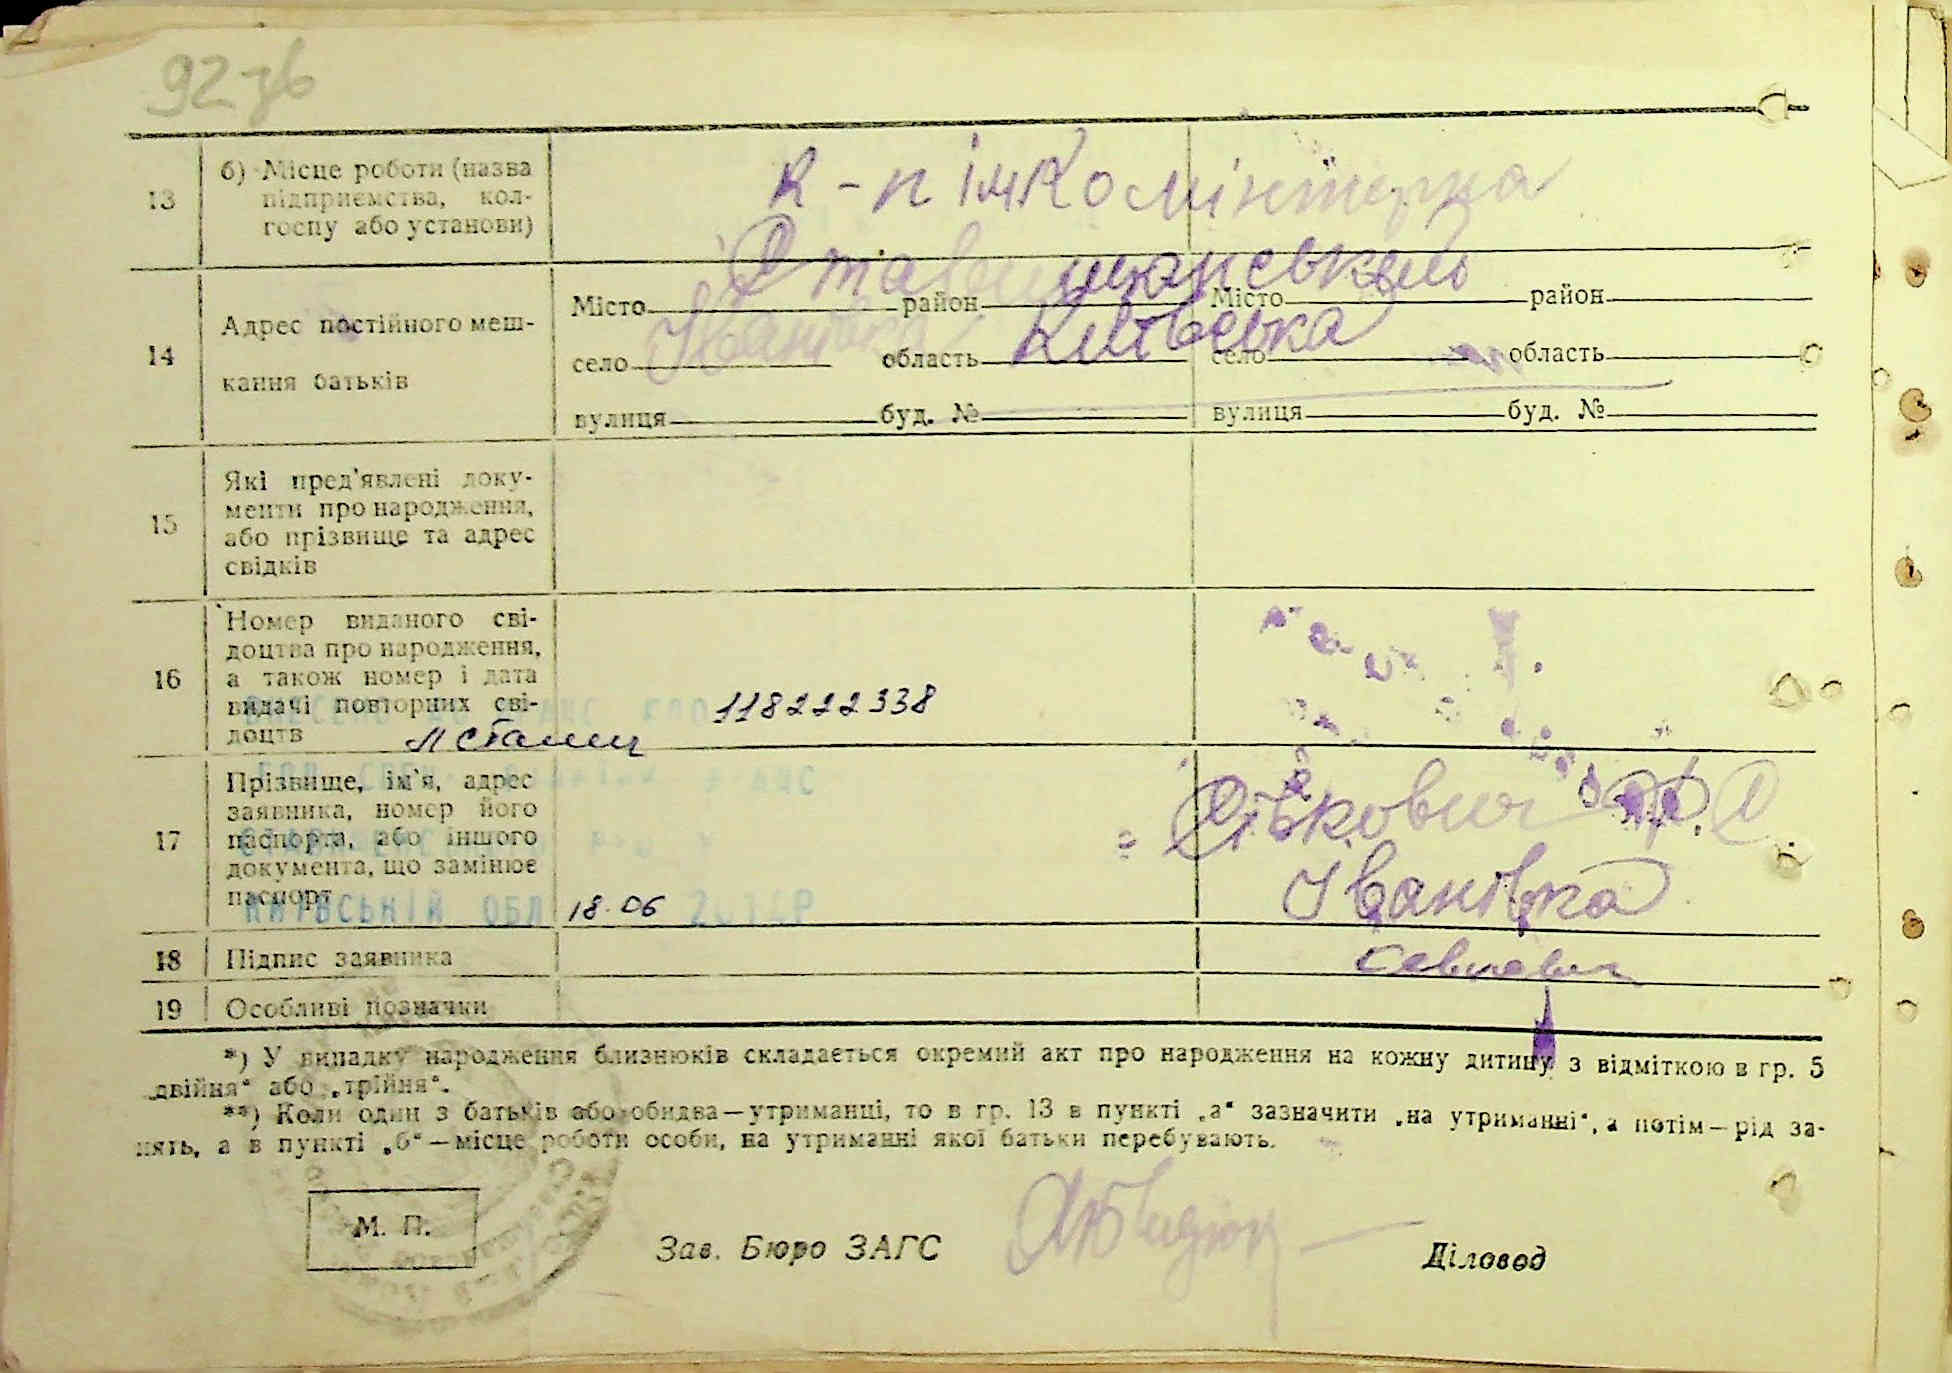 92 зв
13 б) Місце роботи (назва підприємства, колгоспу або установи)
к-п ім Комінтерна
14 Адрес постійного мешкання батьків
Ставищанський
Місто район Місто район
Іванівка Київська
село область село область
вулиця буд. № вулиця буд. №
15 Які пред'явлені документи про народження, або прізвище та адрес свідків
16 Номер виданого свідоцтва про народження, а також номер і дата видачі повторних свідоцтв
118222338
17 Прізвище, ім'я, адрес заявника, номер його паспорта, або іншого документа, що замінює паспорт
Іванівка
КИЇВСЬКІЙ ОБЛ 18.06 2012Р
18 Підпис заявника
19 Особливі позначки
*) У випадку народження близнюків складається окремий акт про народження на кожну дитину з відміткою в гр. 5
„двійня“ або „трійня“.
**) Коли один з батьків або обидва—утриманці, то в гр. 13 в пункті „а“ зазначити „на утриманні“, а потім—рід за-
нять, а в пункті „б“—місце роботи особи, на утриманні якої батьки перебувають.
М. П.
Зав. Бюро ЗАГС Діловод